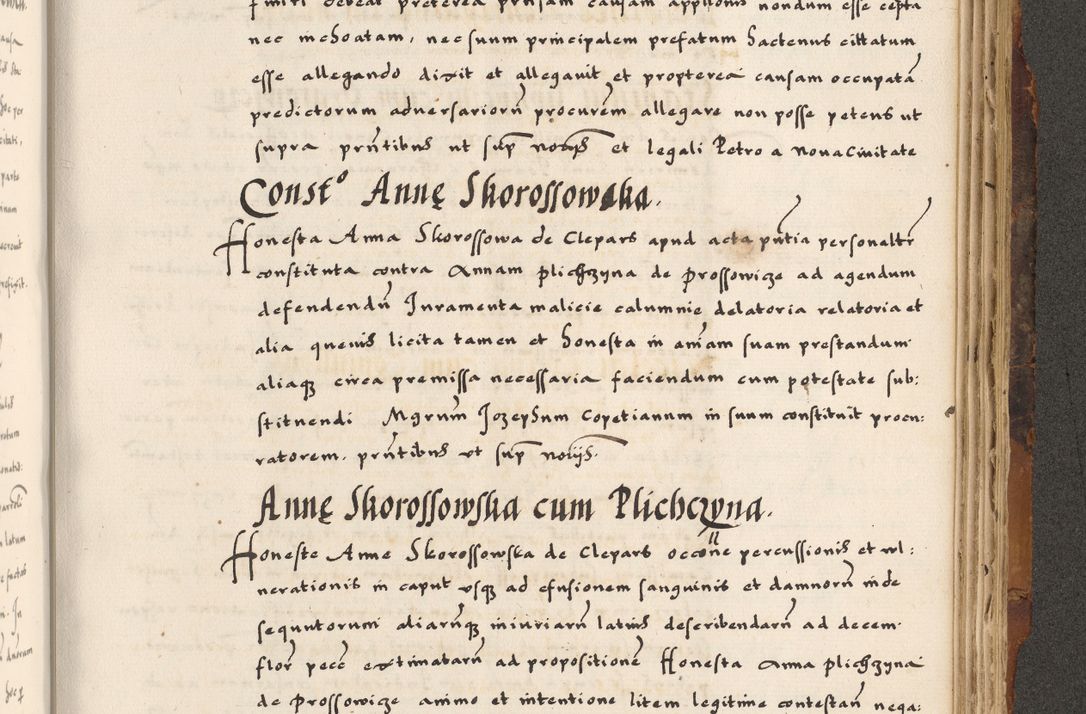 finiri debeat preterea prñsam causam applõnis nondum esse cepta
nec inchoatam, nec suum principalem prefatum hactenus cittatum
esse allegando dixit et allegavit et propterea causam occupatã
predictorum adversariorũ procurẽm allegare non posse petens ut
supra prñtibus ut sup̃ notijs et legali Petro a Nova Civitate
Constᵒ Annę Skorossowska.
Honesta Anna Skorossowa de Clepars apud acta pñtia personaltr̃
constituta contra Annam plichczyna de Prossowicze ad agendum
defendendũ Juramenta malicie calumnie delatoria relatoria et
alia quevis licita tamen et honesta in aĩam suam prestandum
aliaqꝫ circa premissa necessaria faciendum cum potestate sub:
stituendi Mgrum̃ Jozephum Copetianum in suum constituit procu:
ratorem. prñtibus ut sup̃ notijs.
Annę Skorossowska cum Plichczyna.
Honeste Anne Skorossowska de Clepars occõne percussionis et vul:
nerationis in caput usqꝫ ad efusionem sanguinis et damnorũ inde
sequutorum aliarũqꝫ iniuriarũ latius describendarũ ad decem
flor̃ pecc̃ extimatarũ ad propositionẽ Honesta Anna plichczyna
de Prossowicze animo et intentione litem legitime contestañ nega: